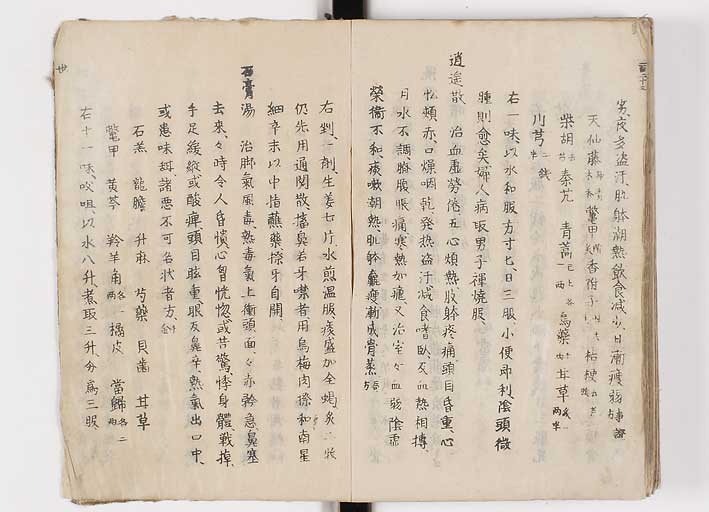 労疫多盗汗肌躰潮熱飲食減少日漸瘦弱
天仙藤 鼈甲 香附子 桔梗
柴胡 秦艽 青蒿 烏藥 甘草
川芎
右一味以水和服方寸匕日三服小便即利陰頭微
腫則愈矣婦人病取男子褌燒服
逍遙散 治血虛勞倦五心煩熱肢躰疼痛頭目昏重心
忪頰赤口燥咽乾發熱盗汗減食嗜臥及血熱相搏
月水不調臍腹脹痛寒熱如瘧又治室女血弱陰虛
榮衛不和痰嗽潮熱肌躰羸瘦漸成骨蒸
右剉一劑生姜七片水煎溫服痰盛加全蝎炙二枚
仍先用通関散搐鼻若牙噤者用烏梅肉揉和南星
細辛末以中指蘸藥擦牙自開
石膏湯 治脚氣風毒熱毒氣上衝頭面面赤矜急鼻塞
去來々時令人昏憒心胷恍惚或苦驚悸身體戰掉
手足緩縱或酸痺頭目眩重眼反鼻辛熱氣出口中
或患味甜諸惡不可名状者方
石羔 龍膽 升麻 芍藥 貝齒 甘草
鼈甲 黄芩 羚羊角 橘皮 當歸
右十一味㕮咀以水八升煮取三升分爲三服